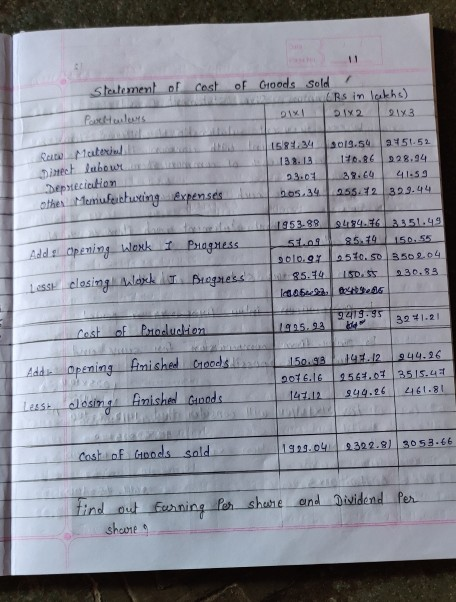 11
Statement of Cost of Goods Sold
(Rs in lakhs)
Particulars 21x1 21x2 21x3
Raw Material 1587.34 2019.54 2751.52
Direct labour 138.13 170.86 228.94
Depreciation 23.07 38.64 41.59
Other Manufacturing Expenses 205.34 255.72 329.44
1953.88 2484.76 3351.49
Add: Opening Work I Progress 57.09 85.74 150.55
2010.97 2570.50 3502.04
Less: closing Work I Progress 85.74 150.55 230.83
2419.95
Cost of Production 1925.23 3271.21
Add:- Opening finished Goods 150.93 147.12 244.26
2076.16 2567.07 3515.47
Less:- closing finished Goods 147.12 244.26 461.81
Cost of Goods sold 1929.04 2322.81 3053.66
Find out Earning Per share and Dividend Per
share?